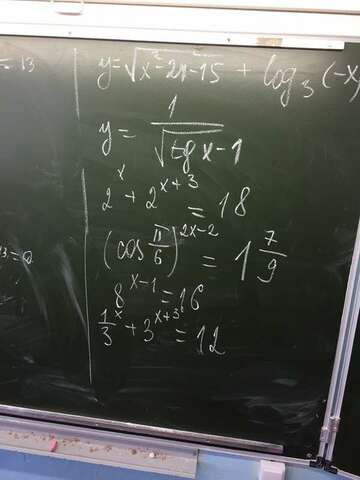 = 13
y=√(x²-2x-15) + log₃(-x)
y= 1/(√(tg x)-1)
2^x + 2^(x+3) = 18
(cos π/6)^(2x-2) = 1 7/9
8^(x-1) = 16
=0
1/3^x + 3^(x+3) = 12